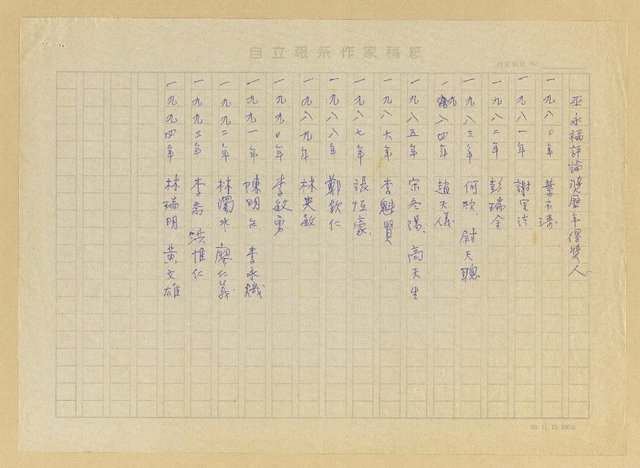 自立報系作家稿紙
巫永福評論獎歷年得獎人
一九八〇年 葉石濤
一九八一年 謝里法
一九八二年 彭瑞金
一九八三年 何欣 尉天聰
一九八四年 趙天儀
一九八五年 宋冬陽、高天生
一九八六年 李魁賢
一九八七年 張恒豪
一九八八年 鄭欽仁
一九八九年 林央敏
一九九〇年 李敏勇
一九九一年 陳明台 李永熾
一九九二年 林濁水 廖仁義
一九九三年 李喬 洪惟仁
一九九四年 林瑞明 黃文雄